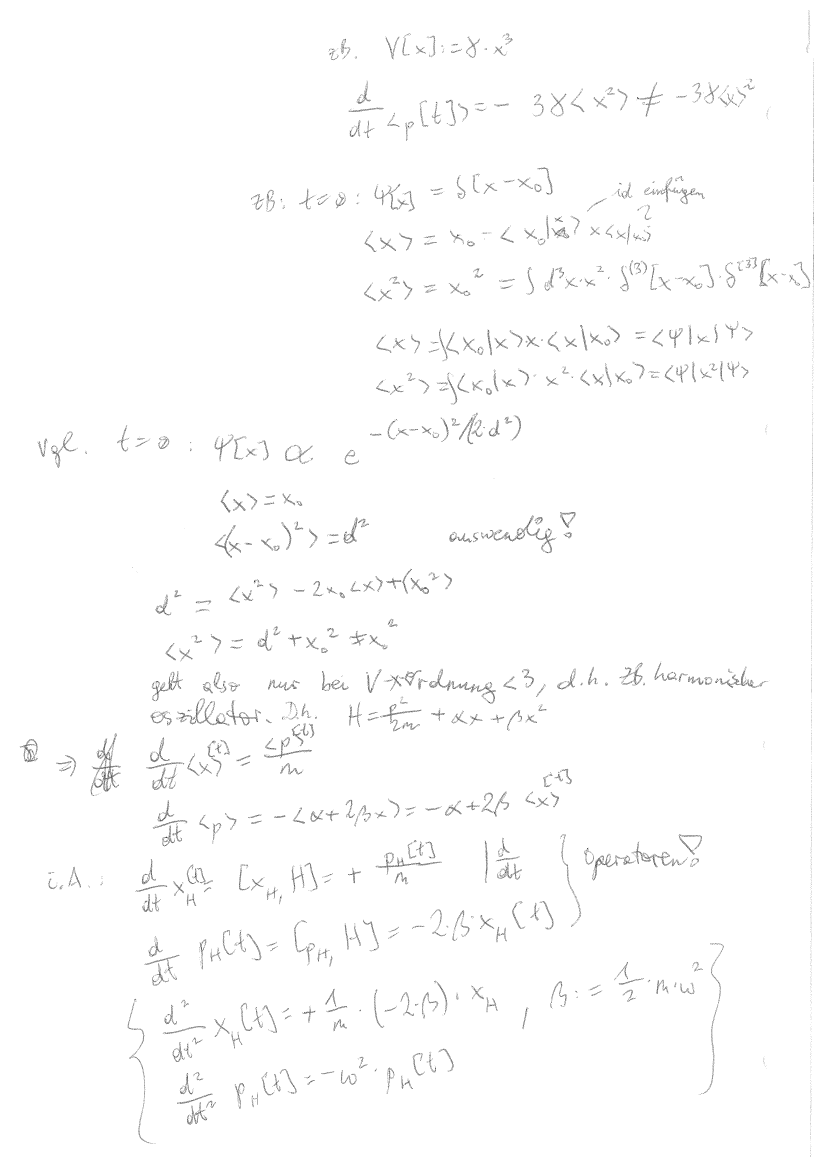 zB. V[x]:=γ·x³
d/dt <p[t]> = - 3γ<x²> ≠ -3γ<x>²
zB: t=0: Ψ[x] = δ[x-x₀]
id einfügen
<x> = x₀ - <x₀|x> x <x|x₀>
<x²> = x₀² = ∫d³x·x²·δ⁽³⁾[x-x₀]·δ⁽³⁾[x-x₀]
<x> = ∫<x₀|x>x·<x|x₀> = <Ψ|x|Ψ>
<x²> = ∫<x₀|x>·x²·<x|x₀> = <Ψ|x²|Ψ>
Vgl. t=0: Ψ[x] ∝ e^(-(x-x₀)²/(2·d²))
<x> = x₀
<(x-x₀)²> = d² auswendig!
d² = <x²> - 2x₀<x> + <x₀²>
<x²> = d² + x₀² ≠ x₀²
geht also nur bei V x-Ordnung <3, d.h. zb. harmonischer
oszillator. D.h. H = p²/2m + αx + βx²
⇒ d/dt <x>[t] = <p>[t]/m
d/dt <p> = -<α+2βx> = -α+2β <x>[t]
i.A.: d/dt x_H[t] = [x_H, H] = + p_H[t]/m | d/dt } Operatoren!
d/dt p_H[t] = [p_H, H] = -2·β·x_H[t]
d²/dt² x_H[t] = + 1/m · (-2·β)·x_H , β:= 1/2·m·ω²
d²/dt² p_H[t] = -ω²·p_H[t]